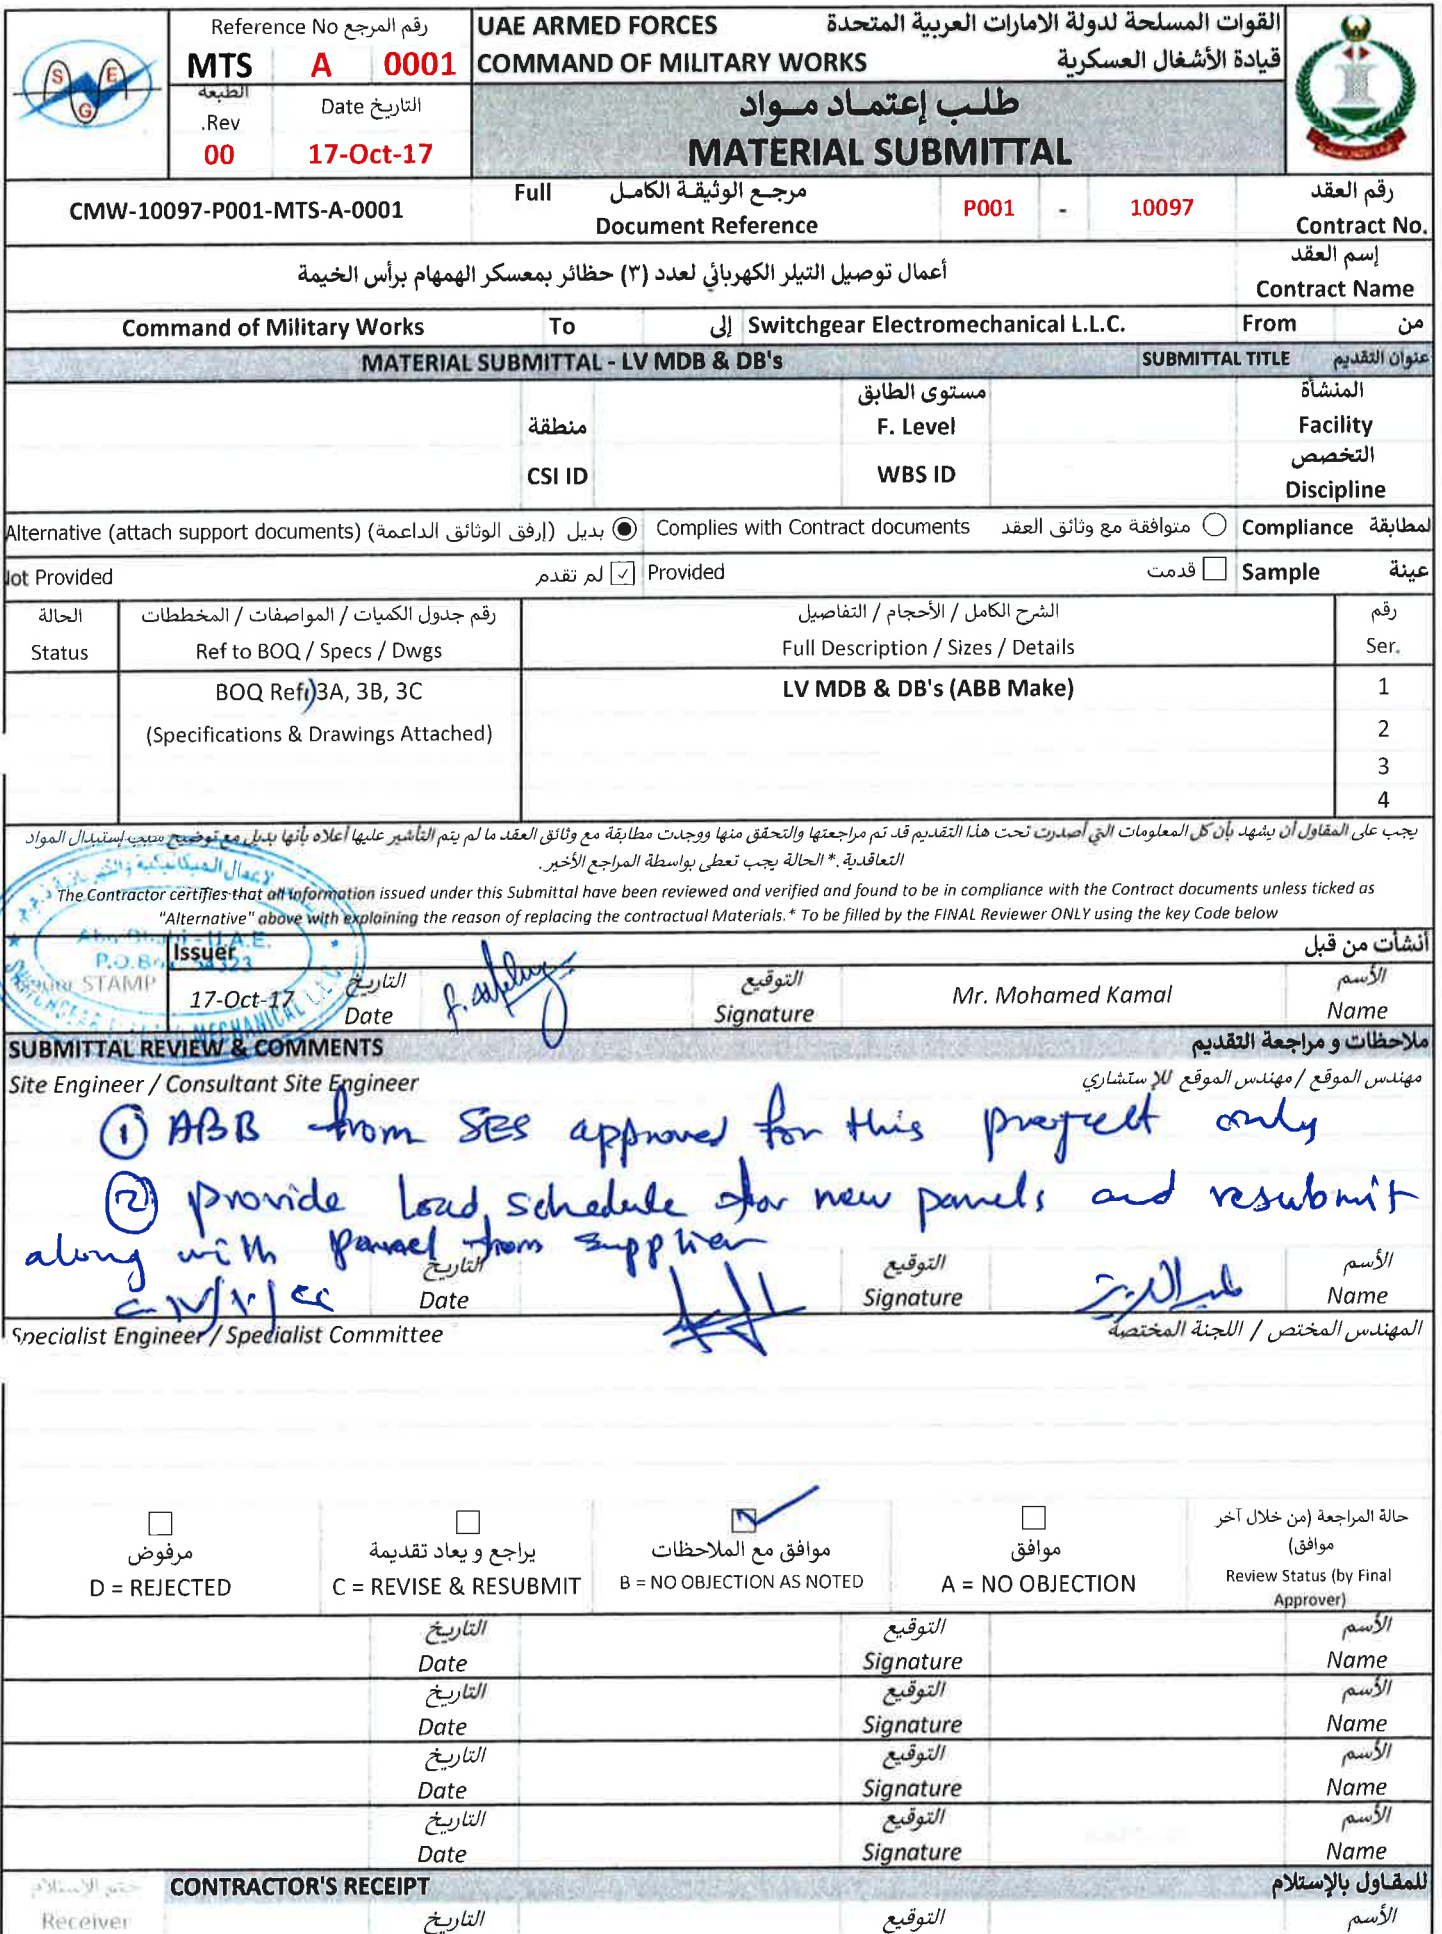 S E G
Reference No رقم المرجع
MTS A 0001
الطبعة
.Rev
00
Date التاريخ
17-Oct-17
UAE ARMED FORCES القوات المسلحة لدولة الامارات العربية المتحدة
COMMAND OF MILITARY WORKS قيادة الأشغال العسكرية
طلـب إعتمـاد مـواد
MATERIAL SUBMITTAL
CMW-10097-P001-MTS-A-0001
Full مرجـع الوثيقـة الكامـل
Document Reference
P001 - 10097
رقم العقد
Contract No.
أعمال توصيل التيلر الكهربائي لعدد (٣) حظائر بمعسكر الهمهام برأس الخيمة
إسم العقد
Contract Name
Command of Military Works To إلى Switchgear Electromechanical L.L.C. From من
MATERIAL SUBMITTAL - LV MDB & DB's SUBMITTAL TITLE عنوان التقديم
منطقة
مستوى الطابق
F. Level
المنشأة
Facility
CSI ID WBS ID
التخصص
Discipline
Alternative (attach support documents) بديل (إرفق الوثائق الداعمة) Complies with Contract documents متوافقة مع وثائق العقد Compliance لمطابقة
Iot Provided لم تقدم Provided قدمت Sample عينة
الحالة
Status
رقم جدول الكميات / المواصفات / المخططات
Ref to BOQ / Specs / Dwgs
الشرح الكامل / الأحجام / التفاصيل
Full Description / Sizes / Details
رقم
Ser.
BOQ Ref: 3A, 3B, 3C LV MDB & DB's (ABB Make) 1
(Specifications & Drawings Attached) 2
3
4
يجب على المقاول أن يشهد بأن كل المعلومات التي أصدرت تحت هذا التقديم قد تم مراجعتها والتحقق منها ووجدت مطابقة مع وثائق العقد ما لم يتم التأشير عليها أعلاه بأنها بديل مع توضيح سبب إستبدال المواد
التعاقدية. * الحالة يجب تعطى بواسطة المراجع الأخير.
The Contractor certifies that all information issued under this Submittal have been reviewed and verified and found to be in compliance with the Contract documents unless ticked as
"Alternative" above with explaining the reason of replacing the contractual Materials. * To be filled by the FINAL Reviewer ONLY using the key Code below
Abu Dhabi - U.A.E.
STAMP
Issuer أنشأت من قبل
17-Oct-17
التاريخ
Date
التوقيع
Signature
Mr. Mohamed Kamal
الأسم
Name
SUBMITTAL REVIEW & COMMENTS ملاحظات و مراجعة التقديم
Site Engineer / Consultant Site Engineer مهندس الموقع / مهندس الموقع للإستشاري
① ABB from SES approved for this project only
② provide load schedule for new panels and resubmit
along with panel from supplier
التاريخ
Date
التوقيع
Signature
الأسم
Name
Specialist Engineer / Specialist Committee المهندس المختص / اللجنة المختصة
مرفوض
D = REJECTED
يراجع و يعاد تقديمة
C = REVISE & RESUBMIT
موافق مع الملاحظات
B = NO OBJECTION AS NOTED
موافق
A = NO OBJECTION
حالة المراجعة (من خلال آخر
موافق)
Review Status (by Final
Approver)
التاريخ التوقيع الأسم
Date Signature Name
التاريخ التوقيع الأسم
Date Signature Name
التاريخ التوقيع الأسم
Date Signature Name
التاريخ التوقيع الأسم
Date Signature Name
ختم الإستلام
Receiver
CONTRACTOR'S RECEIPT للمقـاول بالإستلام
التاريخ التوقيع الأسم